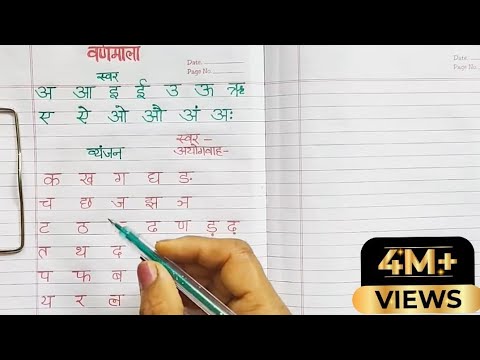 वर्णमाला
Date:
Page No:
Date:
Page No:
स्वर
अ आ इ ई उ ऊ ऋ
ए ऐ ओ औ अं अः
स्वर-
व्यंजन अयोगवाह-
क ख ग घ ङ
च छ ज झ ञ
ट ठ ढ ण ड़ ढ़
त थ द
प फ ब
य र ल
4M+
VIEWS